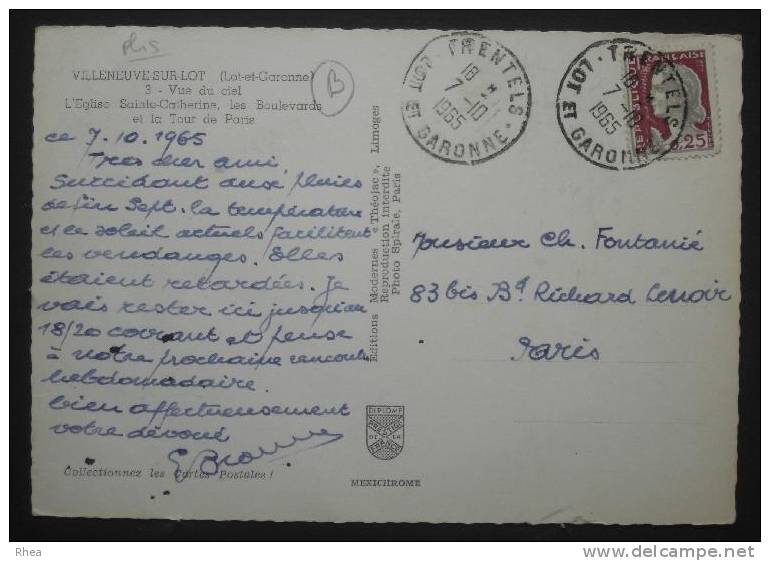 plis
VILLENEUVE-SUR-LOT (Lot-et-Garonne)
3 - Vue du ciel
L'Eglise Sainte-Catherine, les Boulevards
et la Tour de Paris
B
ce 7.10.1965
Très cher ami
Succédant aux pluies
de fin Sept. la température
et le soleil actuels facilitent
les vendanges. Elles
étaient retardées. Je
vais rester ici jusqu'au
18/20 courant et pense
à notre prochaine rencontre
hebdomadaire.
bien affectueusement
votre dévoué
Collectionnez les Cartes Postales !
Editions Modernes « Théojac », Limoges
Reproduction Interdite
Photo Spirale, Paris
DIPLOME
PRESTIGE
DE LA
FRANCE
MEXICHROME
TRENTELS
18 H
7 -10
1965
LOT ET GARONNE
TRENTELS
18 H
7 -10
1965
LOT ET GARONNE
REPUBLIQUE FRANÇAISE
0,25
POSTES
Monsieur Ch. Fontanié
83 bis Bd Richard Lenoir
Paris
Rhea
http://www.delcampe.net